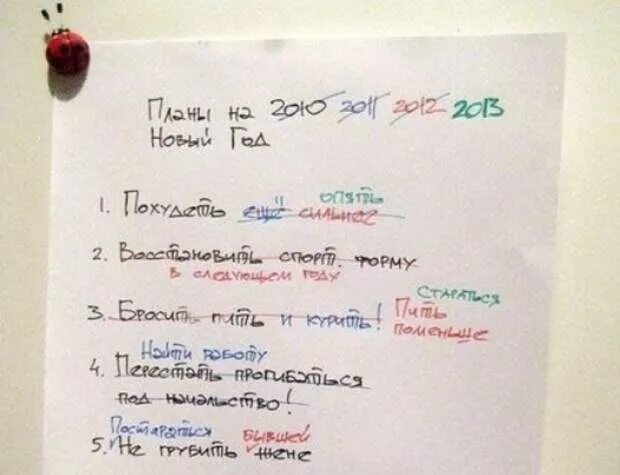 Планы на 2010 2011 2012 2013
Новый Год
опять
1. Похудеть ещё сильнее
2. Восстановить спорт. форму
в следующем году
стараться
3. Бросить пить и курить! Пить
поменьше
Найти работу
4. Перестать прогибаться
под начальство!
Постараться бывшей
5. Не грубить жене